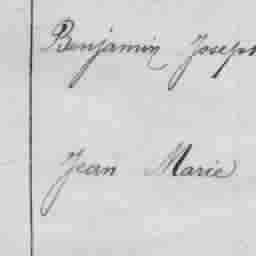 Benjamin Joseph
Jean Marie